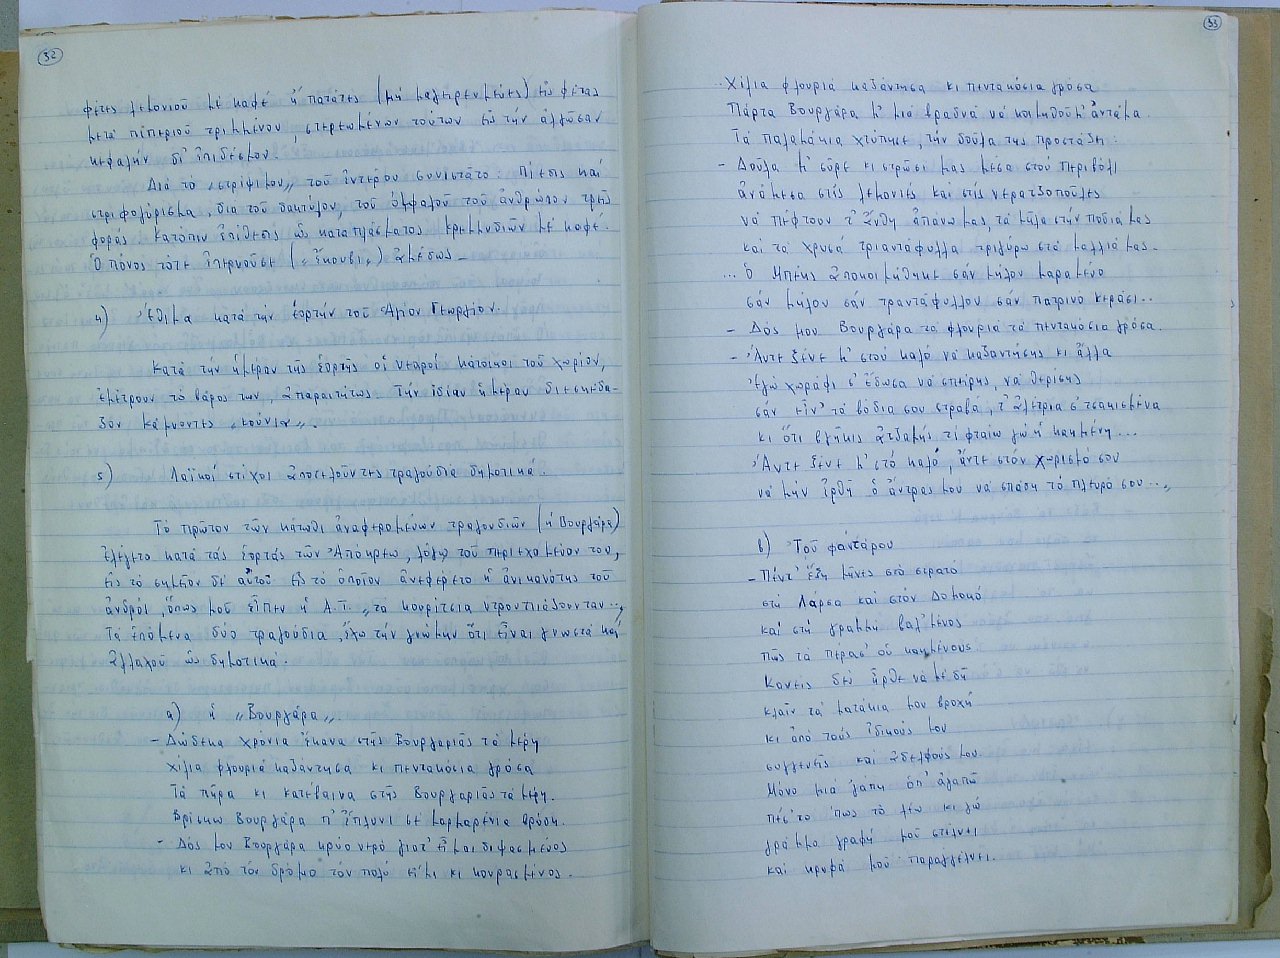 32
φέτες λεμονιοῦ μέ καφέ ἤ πατάτες (μή μαγειρευμένες) εἰς φέτας
μετά πιπεριοῦ τριμμένου στερεωμένων τούτων εἰς τήν ἀλγοῦσαν
κεφαλήν δι' ἐπιδέσμου.
Διά τό „στρίψιμον„ τοῦ ἐντέρου συνιστᾶτο: Πίεσις καί
στριφογύρισμα, διά τοῦ δακτύλου, τοῦ ὀμφαλοῦ τοῦ ἀνθρώπου τρεῖς
φοράς κατόπιν ἐπίθεσις ὡς καταπλάσματος κρεμμυδιῶν μέ καφέ.
Ὁ πόνος τότε ἐπερνοῦσε („ἔκουβι„) ἀμέσως.
4) Ἔθιμα κατά τήν ἑορτήν τοῦ Ἁγίου Γεωργίου.
Κατά τήν ἡμέραν τῆς ἑορτῆς οἱ νεαροί κάτοικοι τοῦ χωρίου,
ἐμέτρουν τό βάρος των, ἀπαραιτήτως. Τήν ἰδίαν ἡμέραν διεσκέδα-
ζον κάμνοντες „κούνια„.
5) Λαϊκοί στίχοι ἀποτελοῦντες τραγούδια δημοτικά.
Τό πρῶτον τῶν κάτωθι ἀναφερομένων τραγουδιῶν (ἡ Βουργάρα)
ἐλέγετο κατά τάς ἑορτάς τῶν Ἀπόκρεω, λόγῳ τοῦ περιεχομένου του,
εἰς τό σημεῖον δέ αὐτοῦ εἰς τό ὁποῖον ἀνεφέρετο ἡ ἀνικανότης τοῦ
ἀνδρός, ὅπως μοῦ εἶπεν ἡ Α.Τ. „τά κουρίτσια ντρουπιάζουνταν..„
Τά ἑπόμενα δύο τραγούδια, ἔχω τήν γνώμην ὅτι εἶναι γνωστά καί
ἀλλαχοῦ ὡς δημοτικά.
α) ἡ „Βουργάρα„
- Δώδεκα χρόνια ἔκανα στῆς Βουργαριᾶς τά μέρη
χίλια φλουριά καζάντησα κι πεντακόσια γρόσα
Τά πῆρα κι κατέβαινα στῆς Βουργαριᾶς τά μέρη.
Βρίσκω Βουργάρα π' ἔπλυνι σέ μαρμαρένια βρύση.
- Δός μου Βουργάρα κρύο νερό γιατ' εἶμαι διψασμένος
κι ἀπό τόν δρόμο τόν πολύ εἶμι κι κουρασμένος.
33
..Χίλια φλουριά καζάντησα κι πεντακόσια γρόσα
Πάρτα Βουργάρα μ' μιά βραδυά νά κοιμηθοῦμ' ἀντάμα.
Τά παλαμάκια χτύπησε, τήν δούλα της προστάζει:
- Δούλα μ' σῦρε κι στρῶσι μας μέσα στοῦ περιβόλι
ἀνάμεσα στίς λεμονιές καί στίς νερατζοποῦλες
νά πέφτουν τ' ἄνθη ἀπάνω μας, τά μῆλα στήν ποδιά μας
καί τά χρυσά τριαντάφυλλα τριγύρω στά μαλλιά μας.
... Ὁ Μπέης ἀποκοιμήθηκε σάν μῆλον μαραμένο
σάν μῆλον σάν τραντάφυλλον σάν πατρινό κεράσι..
- Δός μου Βουργάρα τά φλουριά τά πεντακόσια γρόσα.
- Ἄντε ξένε μ' στού καλό νά καζαντήσης κι ἄλλα
Ἐγώ χωράφι σ' ἔδωσα νά σπείρης, νά θερίσης
σάν εἶν' τά βόδια σου στραβά, τ' ἀλέτρια σ' τσακισμένα
κι ὅτι βγῆκις ἀτζαμής τί φταίω γώ ἡ καημένη...
Ἄντε ξένε μ' στό καλό, ἄντε στόν χωρισμό σου
νά μήν ἐρθῆ ὁ ἄντρας μου νά σπάση τό πλευρό σου...„
β) Τοῦ φαντάρου
- Πέντ' ἕξη μῆνες στό στρατό
στή Λάρσα καί στόν Δομοκό
καί στή γραμμή βαλμένος
πῶς τά περασ' οὑ καημένους
Κανείς δέν ἦρθε νά μέ δῆ
κλαῖν τά ματάκια μου βροχή
κι ἀπό τούς ἐδικούς μου
συγγενεῖς καί ἀδελφούς μου.
Μόνο μιά γάπη ὁπ' ἀγαπῶ
πές' το ὅπως τό λέω κι γώ
γράμμα γραφή μοῦ στέλνει
καί κρυφά μοῦ παραγγέλνει.